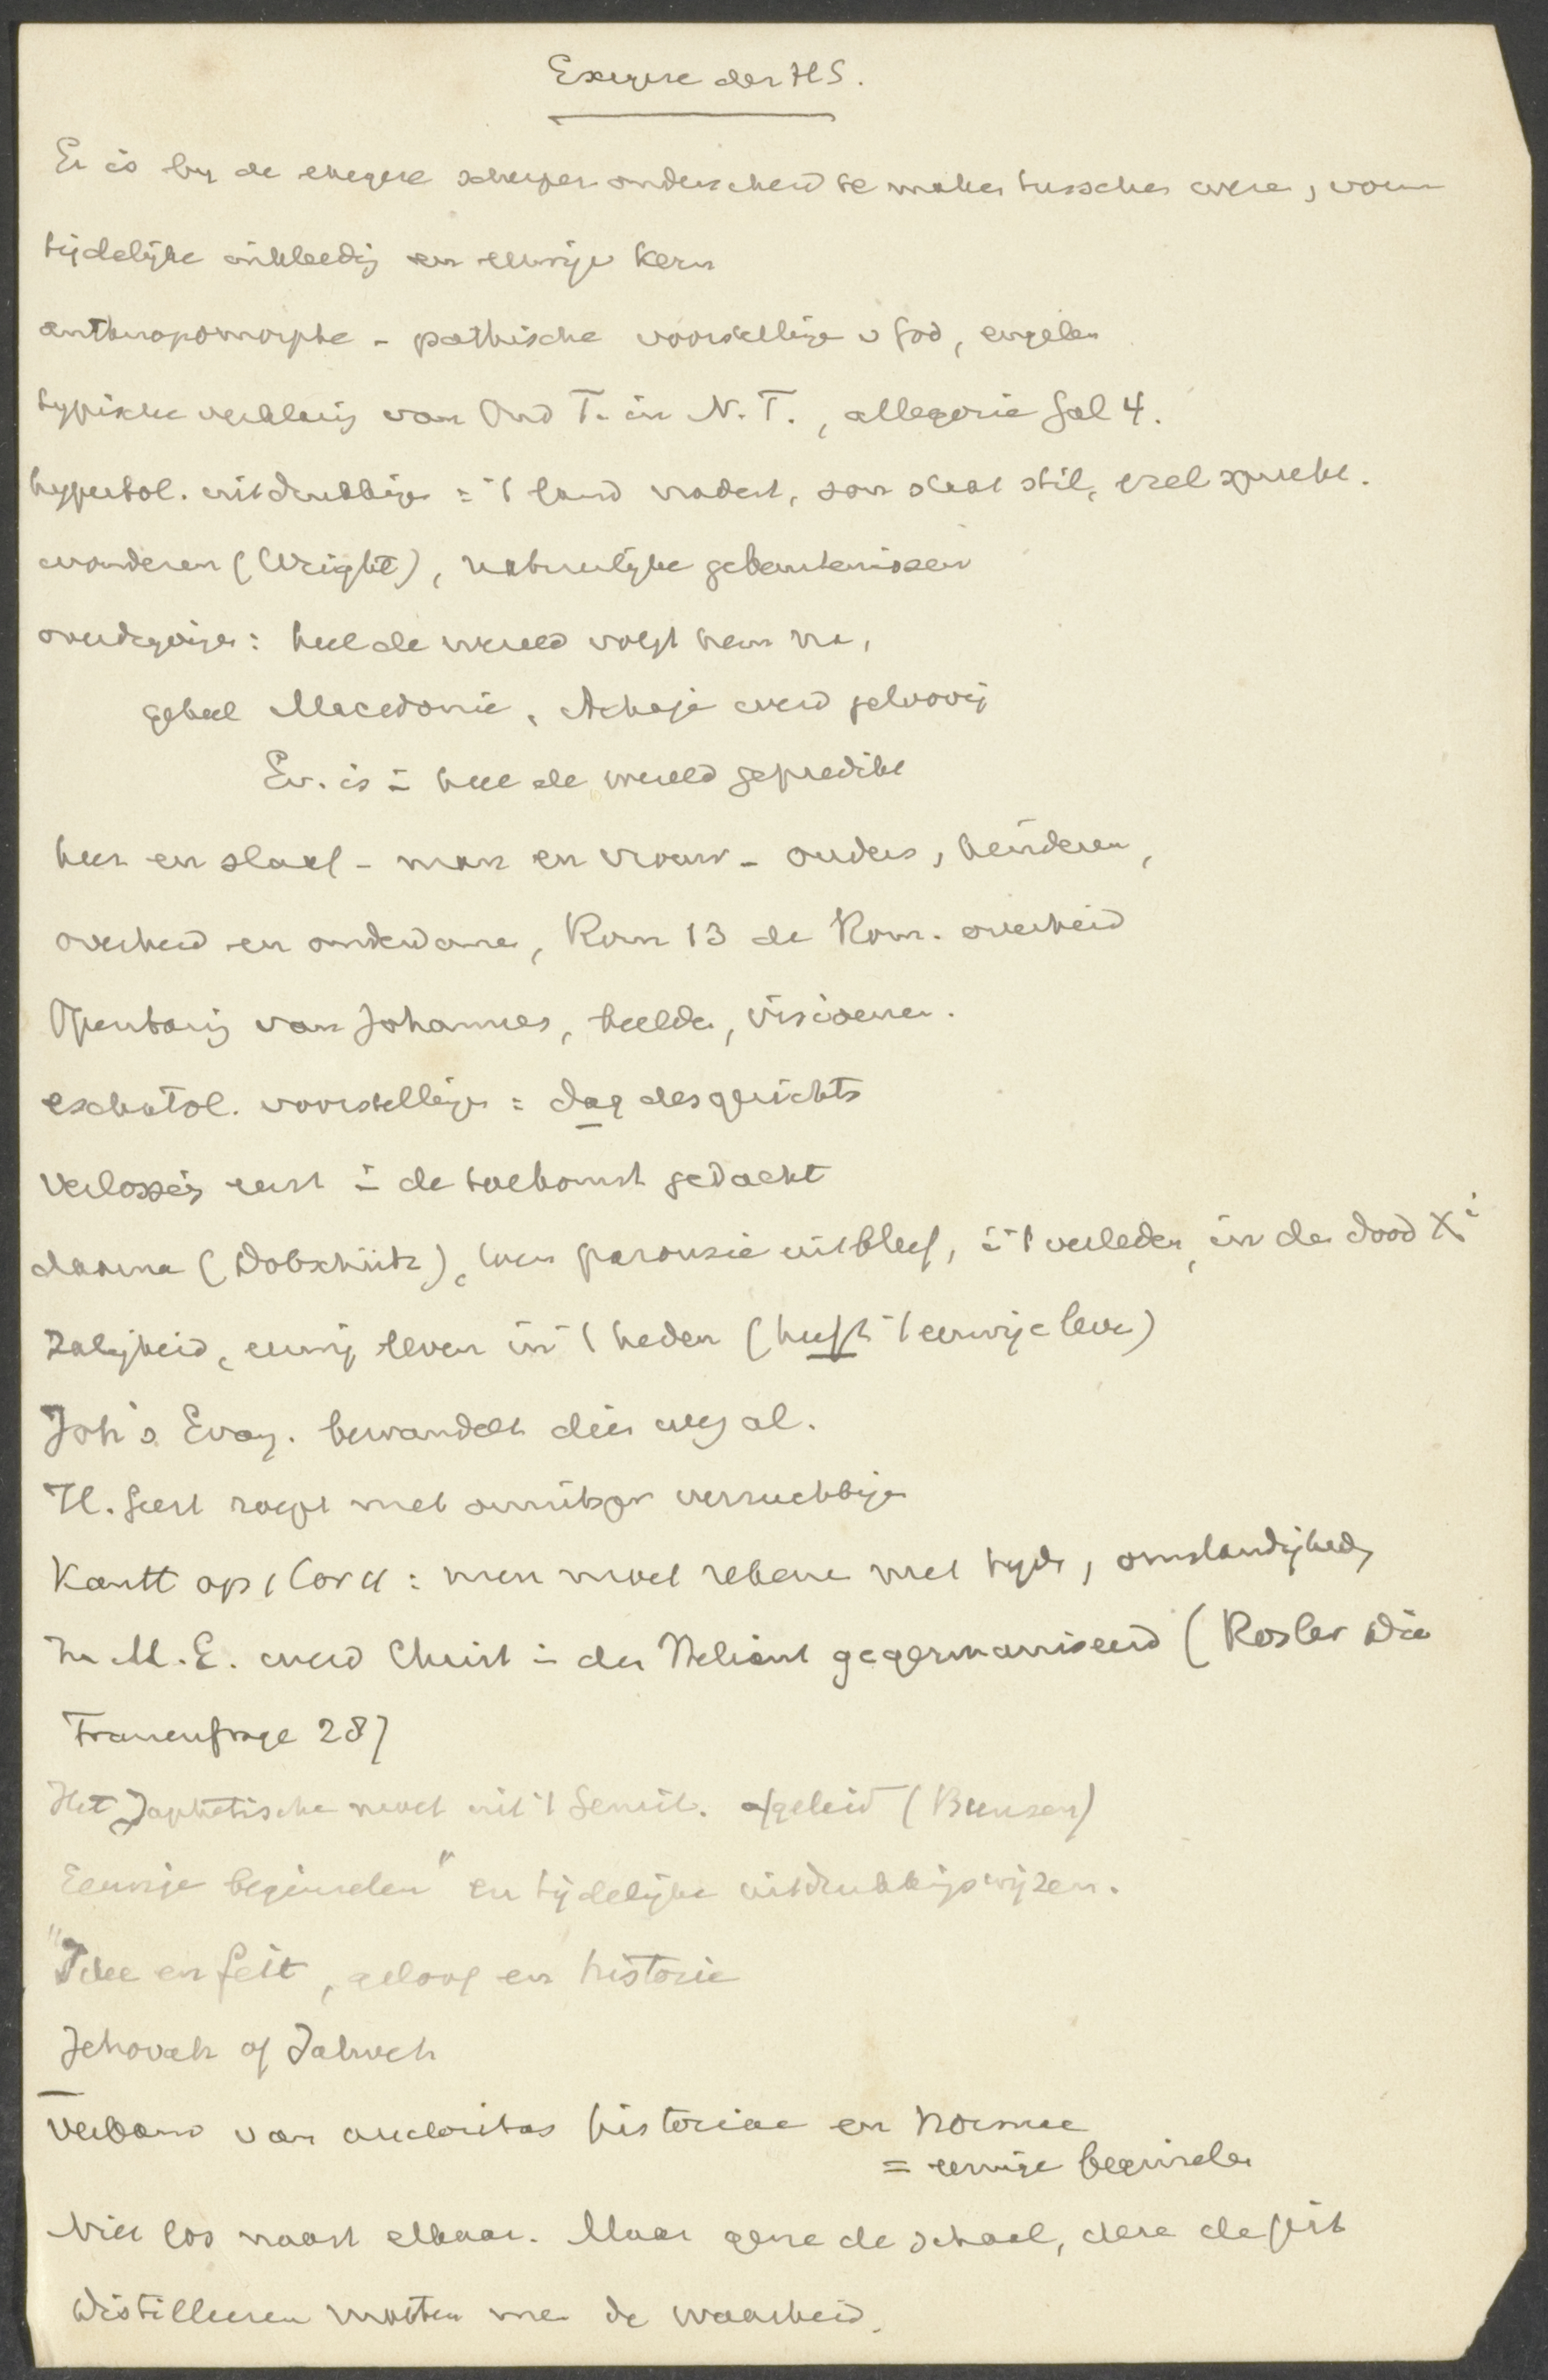 Exegese der H S.
Er is by de exegese scherper onderscheid te maken tusschen wezen, vorm
tijdelijke inkleeding en eeuwige kern
anthropomorphe - pathische voorstellingen v God, engelen
typische verklaring van Oud T. in N. T., allegorie Gal 4.
hyperbol. uitdrukkingen = 't land nadert, zon staat stil, ezel spreekt.
wonderen (Wright), natuurlijke gebeurtenissen
overdrijvingen: heel de wereld volgt hem na,
geheel Macedonie, Achaje werd geloovig
Ev. is in heel de wereld gepredikt
heer en slaaf - man en vrouw - ouders, kinderen,
overheid en onderdanen, Rom 13 de Rom. overheid
Openbaring van Johannes, beelden, visioenen.
eschatol. voorstellingen = dag des gerichts
Verlossing eerst in de toekomst gedacht
daarna (Dobschütz), toen parousie uitbleef, in 't verleden, in den dood Xi
Zaligheid, eeuwig leven in 't heden (heeft 't eeuwige leven)
Joh's Evang. bewandelt dien weg al.
H. Geest roept met onuitspr verzuchtingen
Kantt op 1 Cor 11: men moet rekenen met tyden, omstandigheden
In M.E. werd Christ in den Heliant gegermaniseerd (Rosler Die
Frauenfrage 287
Het Japhetische moet uit 't Semit. afgeleid (Bunsen)
Eeuwige beginselen" en tijdelijke uitdrukkingswijzen.
"Idee en feit, geloof en historie
Jehovah of Jahveh
Verband van auctoritas historiae en normae
= eeuwige beginselen
Niet los naast elkaar. Maar gene de schaal, deze de pit
Distilleeren moeten we de waarheid.